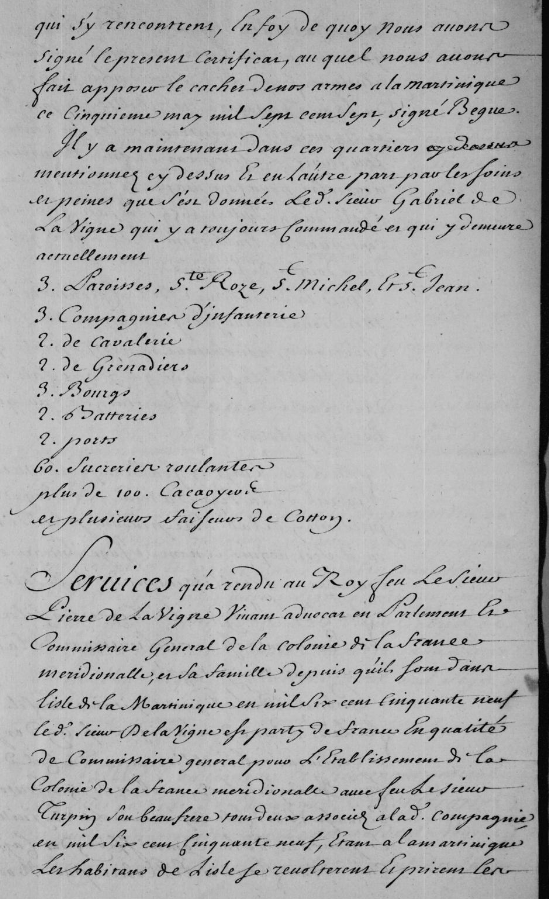 qui s'y rencontrent, En foy de quoy Nous avons
signé le present Certificat, au quel nous avons
fait apposer le cachet de nos armes a la martinique
ce Cinquieme may mil Sept cent Sept, signé Begue.
Il y a maintenant dans ces quartiers cy dessus
mentionnez cy dessus Et en L'autre part par les soins
et peines que s'est données Led. sieur Gabriel de
La Vigne qui y a toujours Commandé et qui y demeure
actuellement
3. Paroisses, Ste Roze, St. Michel, Et St. Jean.
3. Compagnies d'infanterie
2. de Cavalerie
2. de Grenadiers
3. Bourgs
2. Batteries
2. ports
60. Sucreries roulantes
plus de 100. Cacaoyers
et plusieurs faiseurs de Cotton.
Services qu'a rendu au Roy feu Le sieur
Pierre de La Vigne Vivant advocat en Parlement Et
Commissaire General de la colonie de la france
meridionalle, et sa famille depuis qu'ils sont dans
l'isle de la Martinique en mil six cent Cinquante neuf
led. sieur De la Vigne est party de france En qualité
de Commissaire general pour L'Etablissement de la
Colonie de la france meridionalle avec feu Le sieur
Turpin son beaufrere tous deux associez a lad. Compagnie,
en mil six cent Cinquante neuf, Etant a la martinique
Les habitans de L'isle se revolterent Et prirent les